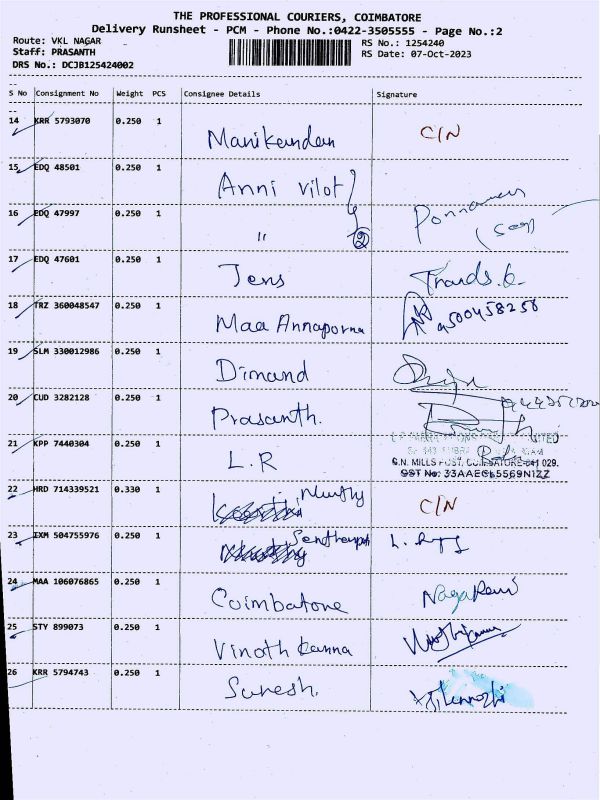 THE PROFESSIONAL COURIERS, COIMBATORE
Delivery Runsheet - PCM - Phone No.:0422-3505555 - Page No.:2
Route: VKL NAGAR
RS No.: 1254240
Staff: PRASANTH
RS Date: 07-Oct-2023
DRS No.: DCJB125424002
S No Consignment No Weight PCS Consignee Details Signature
14 KRR 5793070 0.250 1 Manikandan C/N
15 EDQ 48501 0.250 1 Anni Vilot
16 EDQ 47997 0.250 1 " 2
17 EDQ 47601 0.250 1 Jens
18 TRZ 360048547 0.250 1 Maa Annaporna 9500458256
19 SLM 330012986 0.250 1 Dimand
20 CUD 3282128 0.250 1 Prasanth.
21 KPP 7440304 0.250 1 L.R
S.N. MILLS POST, COIMBATORE-641 029.
GST No: 33AAECL5569N1ZZ
22 HRD 714339521 0.330 1 Murthy C/N
23 IXM 504755976 0.250 1
24 MAA 106076865 0.250 1 Coimbatore
25 STY 899073 0.250 1 Vinoth kanna
26 KRR 5794743 0.250 1 Suresh.